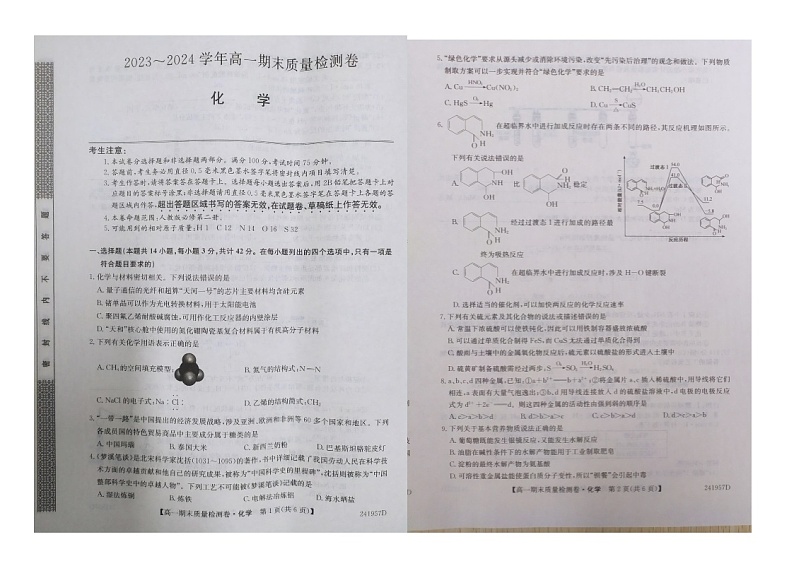 2023～2024学年高一期末质量检测卷
化 学
考生注意：
1.本试卷分选择题和非选择题两部分。满分100分,考试时间75分钟。
2.答题前,考生务必用直径0.5毫米黑色墨水签字笔将密封线内项目填写清楚。
3.考生作答时,请将答案答在答题卡上。选择题每小题选出答案后,用2B铅笔把答题卡上对
应题目的答案标号涂黑;非选择题请用直径0.5毫米黑色墨水签字笔在答题卡上各题的答
题区域内作答,超出答题区域书写的答案无效,在试题卷、草稿纸上作答无效。
4.本卷命题范围:人教版必修第二册。
5.可能用到的相对原子质量:H 1 C 12 N 14 O 16 S 32
一、选择题(本题共14小题,每小题3分,共计42分。在每小题列出的四个选项中,只有一项是
符合题目要求的)
1.化学与材料密切相关。下列说法错误的是
A.量子通信的光纤和超算“天河一号”的芯片主要材料均含硅元素
B.锗单晶可以作为光电转换材料,用于太阳能电池
C.聚四氟乙烯耐酸碱腐蚀,可用作化工反应器的内壁涂层
D.“天和”核心舱中使用的氮化硼陶瓷基复合材料属于有机高分子材料
2.下列有关化学用语表示正确的是
A.CH₄的空间填充模型:
B.氮气的结构式:N—N
C.NaCl的电子式:Na:Cl:
D.乙烯的结构简式:CH₂CH₂
3.“一带一路”是中国提出的经济发展战略,涉及亚洲、欧洲和非洲等60多个国家和地区。下列
各成员国的特色贸易商品中主要成分属于糖类的是
A.中国玛瑙
B.泰国大米
C.新西兰奶粉
D.巴基斯坦骆驼皮灯
4.《梦溪笔谈》是北宋科学家沈括(1031～1095)的著作,书中详细记载了我国劳动人民在科学技
术方面的卓越贡献和他自己的研究成果,被称为“中国科学史的里程碑”,沈括则被称为“中国
整部科学史中的卓越人物”。下列工艺不可能被《梦溪笔谈》记载的是
A.湿法炼铜
B.炼铁
C.电解法冶炼铝
D.海水晒盐
【高一期末质量检测卷·化学 第1页(共6页)】
241957D
密 封 线 内 不 要 答 题
5.“绿色化学”要求从源头减少或消除环境污染,改变“先污染后治理”的观念和做法。下列物质
制取方案可以一步实现并符合“绿色化学”要求的是
A.Cu HNO₃ Cu(NO₃)₂
B.CH₂=CH₂ H₂O CH₃CH₂OH
C.HgS O₂ Hg
D.Cu S CuS
6. NH₂ 在超临界水中进行加成反应时存在两条不同的路径,其反应机理如图所示。
下列有关说法错误的是
A. 比 稳定
B. 经过过渡态Ⅰ进行加成的路径最
终为吸热反应
C. 在超临界水中进行加成反应时,涉及H—O键断裂
D.选择适当的催化剂,可以加快两反应的化学反应速率
过渡态Ⅰ
过渡态Ⅱ
反应历程
7.下列有关硫元素及其化合物的说法或描述错误的是
A.常温下浓硫酸可以使铁钝化,因此可以用铁制容器盛放浓硫酸
B.可以通过单质化合制得FeS,而CuS无法通过单质化合得到
C.酸雨与土壤中的金属氧化物反应后,硫元素以硫酸盐的形式进入土壤中
D.硫黄矿制备硫酸需经过两步:S O₂ SO₃ H₂O H₂SO₄
8.a、b、c、d四种金属,已知:①a+b²⁺══b+a²⁺;②将金属片a、c插入稀硫酸中,用导线将它们
相连,c表面有大量气泡逸出;③b、d用导线连接放入d的硫酸盐溶液中,d电极的电极反应
式为d²⁺+2e⁻══d。则这四种金属的活动性由强到弱的顺序是
A.c>a>b>d
B.d>b>a>c
C.a>c>b>d
D.d>c>a>b
9.下列关于基本营养物质说法正确的是
A.葡萄糖既能发生银镜反应,又能发生水解反应
B.油脂在碱性条件下的水解产物能用于工业生产肥皂
C.淀粉的最终水解产物为氨基酸
D.可溶性重金属盐能使蛋白质分子变性,所以“钡餐”会引起中毒
【高一期末质量检测卷·化学 第2页(共6页)】
241957D